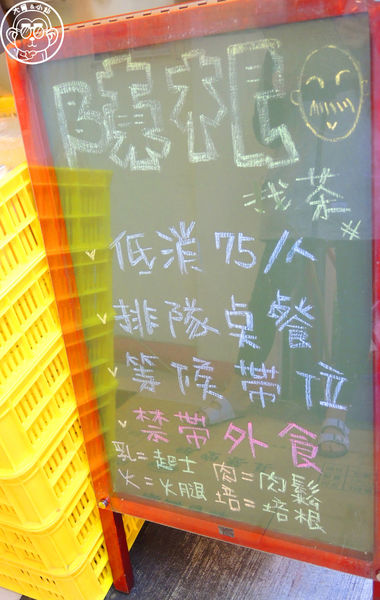 大圖&小妞
陳根
浅茶
低消75/人
排隊桌餐
等候帶位
禁帶外食
乳=起士 肉=肉鬆
火=火腿 培=培根